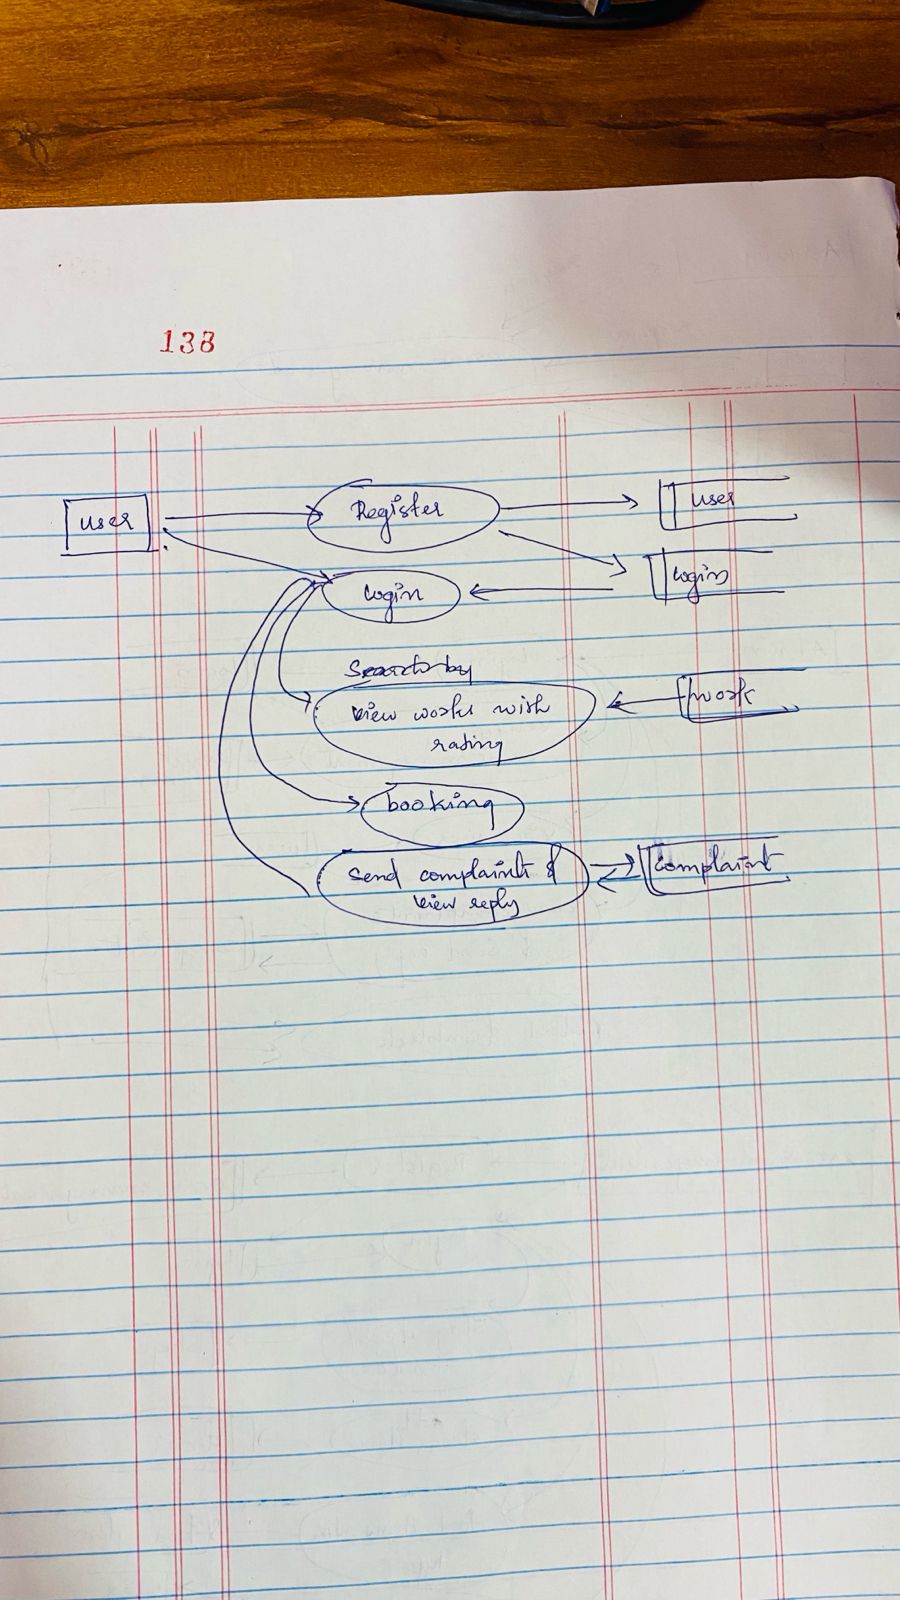 138
user
Register
user
login
login
view works with
rating
work
booking
send complaint &
view reply
complaint